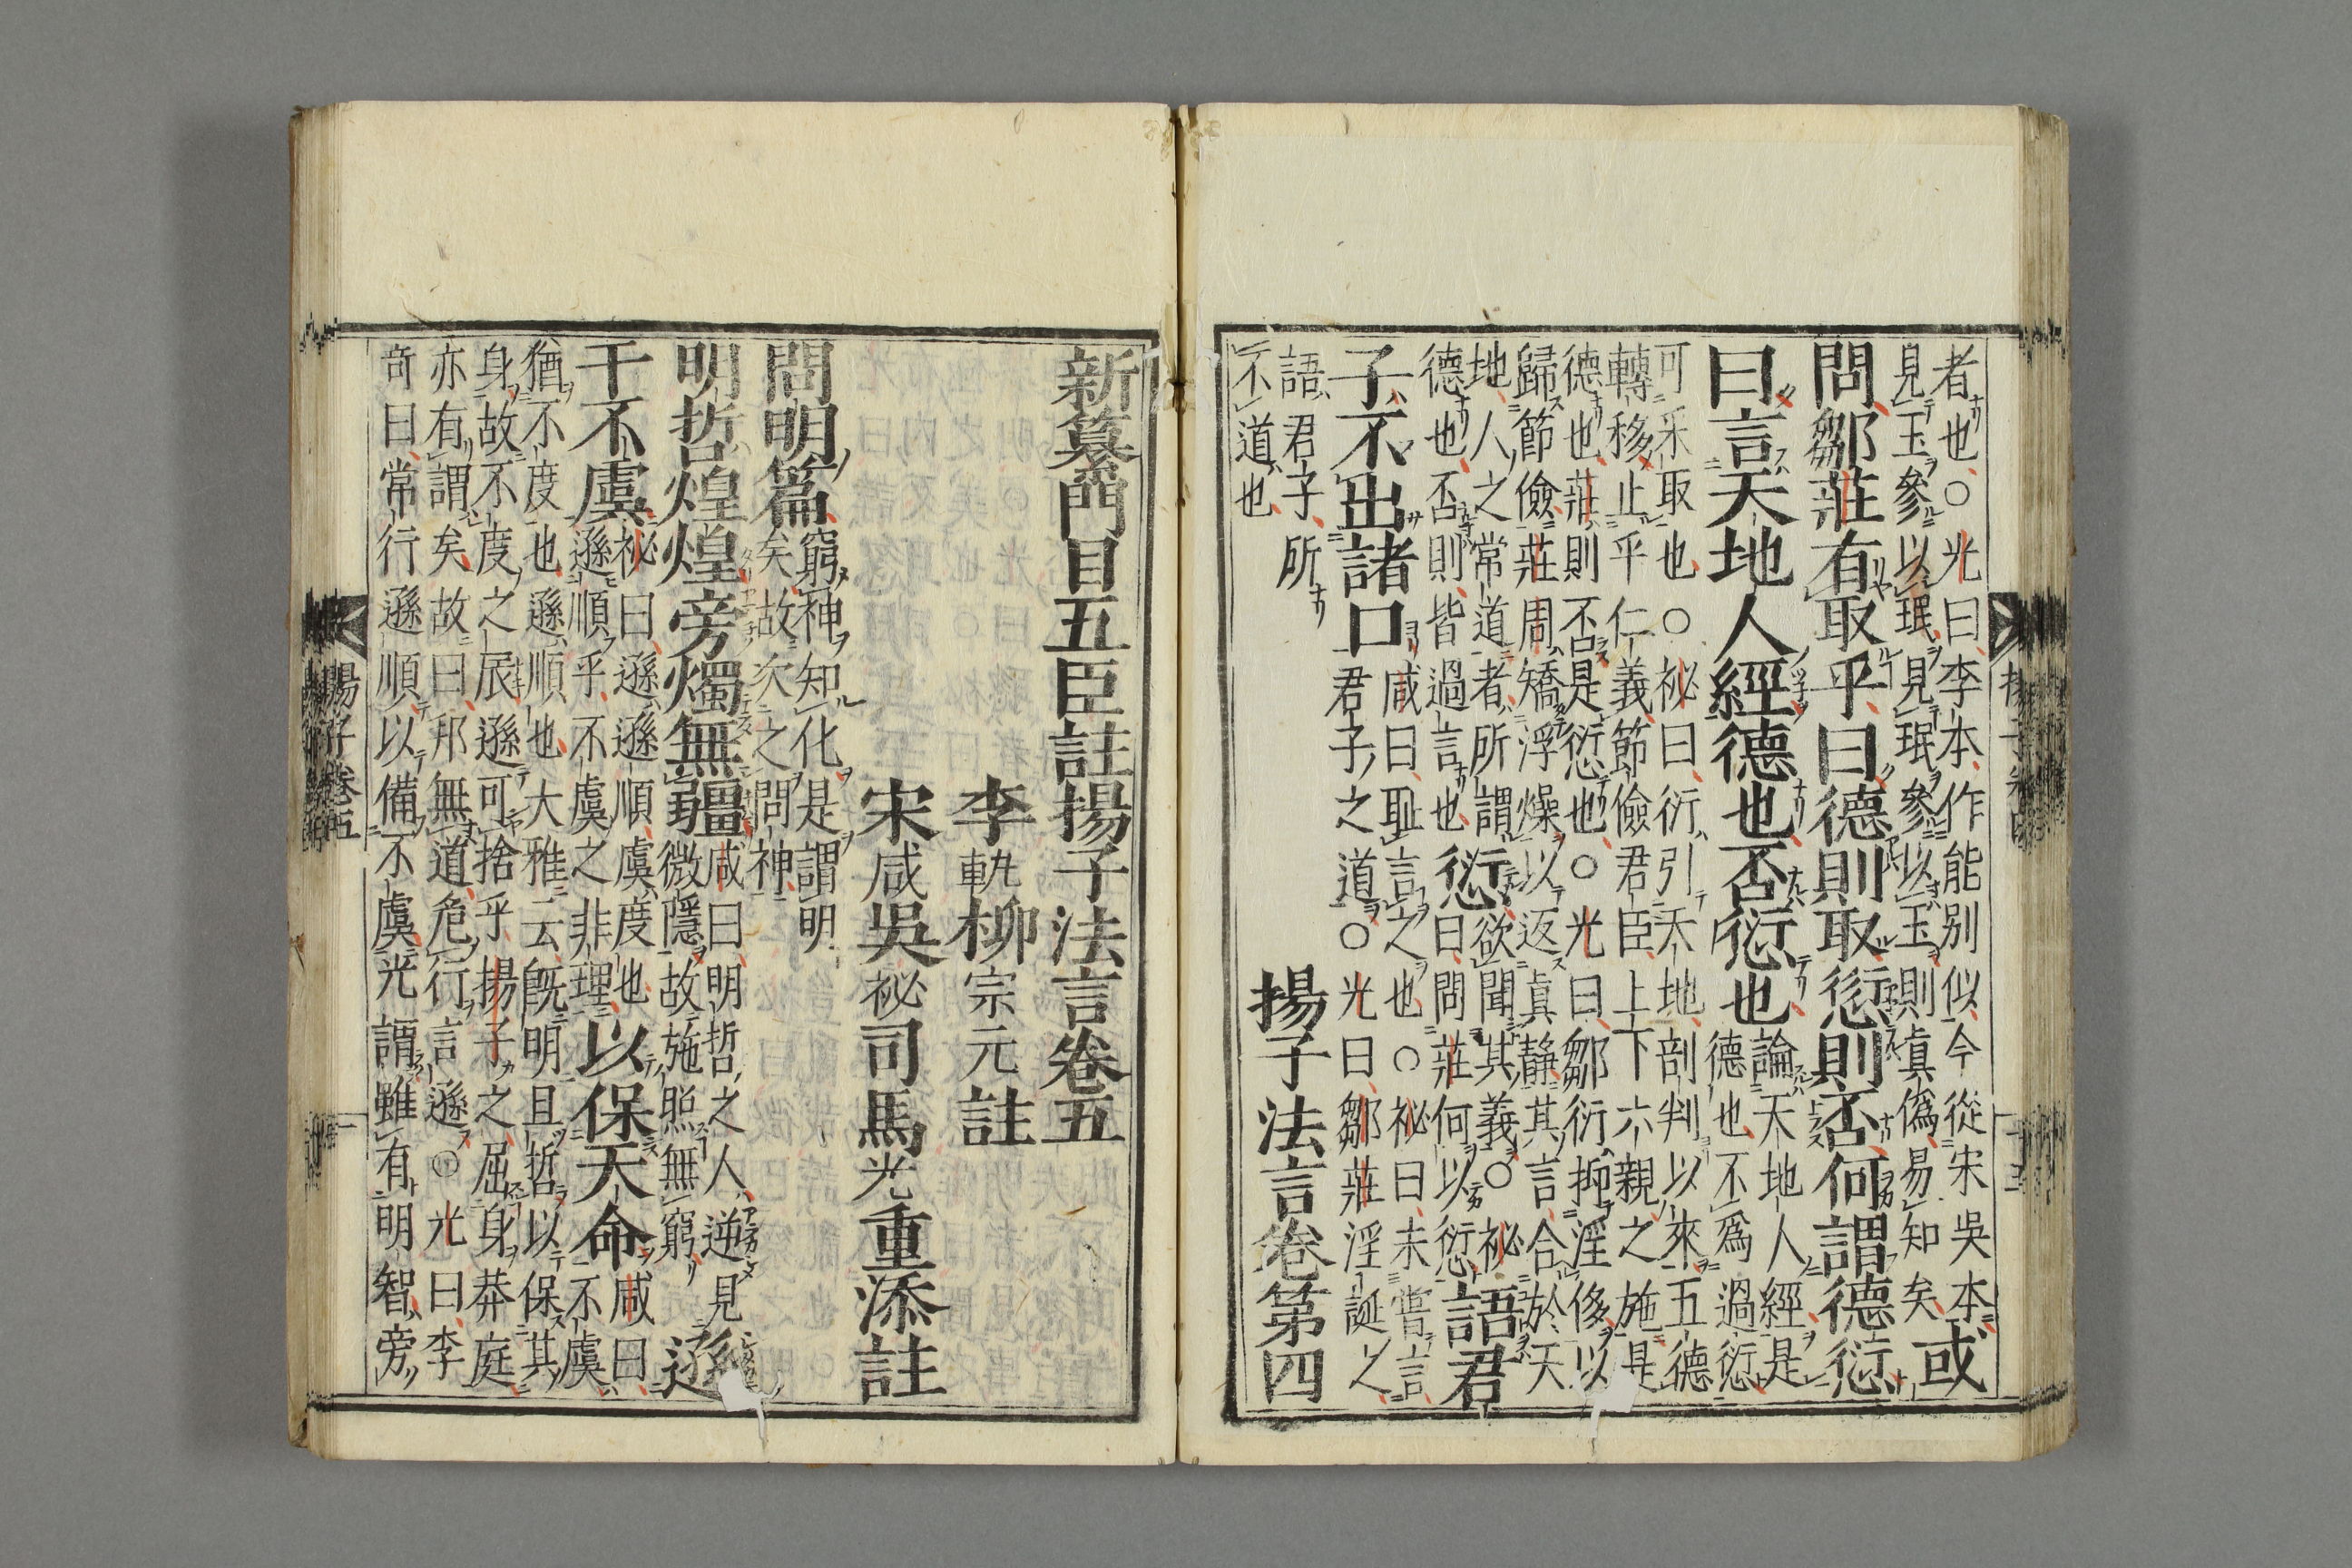 者也○光曰李本作能別似今從宋吳本
見玉參以珉見珉參以玉則眞僞易知矣
或
問鄒莊有取乎曰德則取愆則否何謂德愆
曰言天地人經德也否愆也
論天地人經是
德也不爲過愆
可采取也○祕曰衍引天地剖判以來五德
轉移止乎仁義節儉君臣上下六親之施是
德也莊則否是愆也○光曰鄒衍抑淫侈以
歸節儉莊周矯浮燥以返眞靜其言合於天
地人之常道者所謂
德也否則皆過言也
愆
欲聞其義○祕
曰問莊何以愆
語君
子不出諸口
咸曰耻言之也○祕曰未嘗言
君子之道○光曰鄒莊淫誕之
語君子所
不道也
揚子法言卷第四
揚子卷四
十五
新纂門目五臣註揚子法言卷五
李軌柳宗元註
宋咸吳祕司馬光重添註
問明篇
窮神知化是謂明
矣故次之問神
明哲煌煌旁燭無疆
咸曰明哲之人逆見
微隱故施照無窮
遜
于不虞
祕曰遜遜順虞度也
遜順乎不虞之非理
以保天命
咸曰
不虞
猶不度也遜順也大雅云旣明且哲以保其
身故不度之辰遜可捨乎揚子之屈身莽庭
亦有謂矣故曰邦無道危行言遜○光曰李
奇曰常行遜順以備不虞光謂雖有明智旁
揚子卷五
一